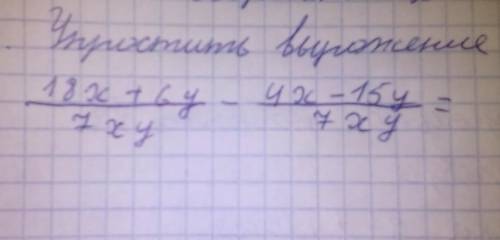 Упростить выражение
18x + 6y / 7xy - 4x - 15y / 7xy =